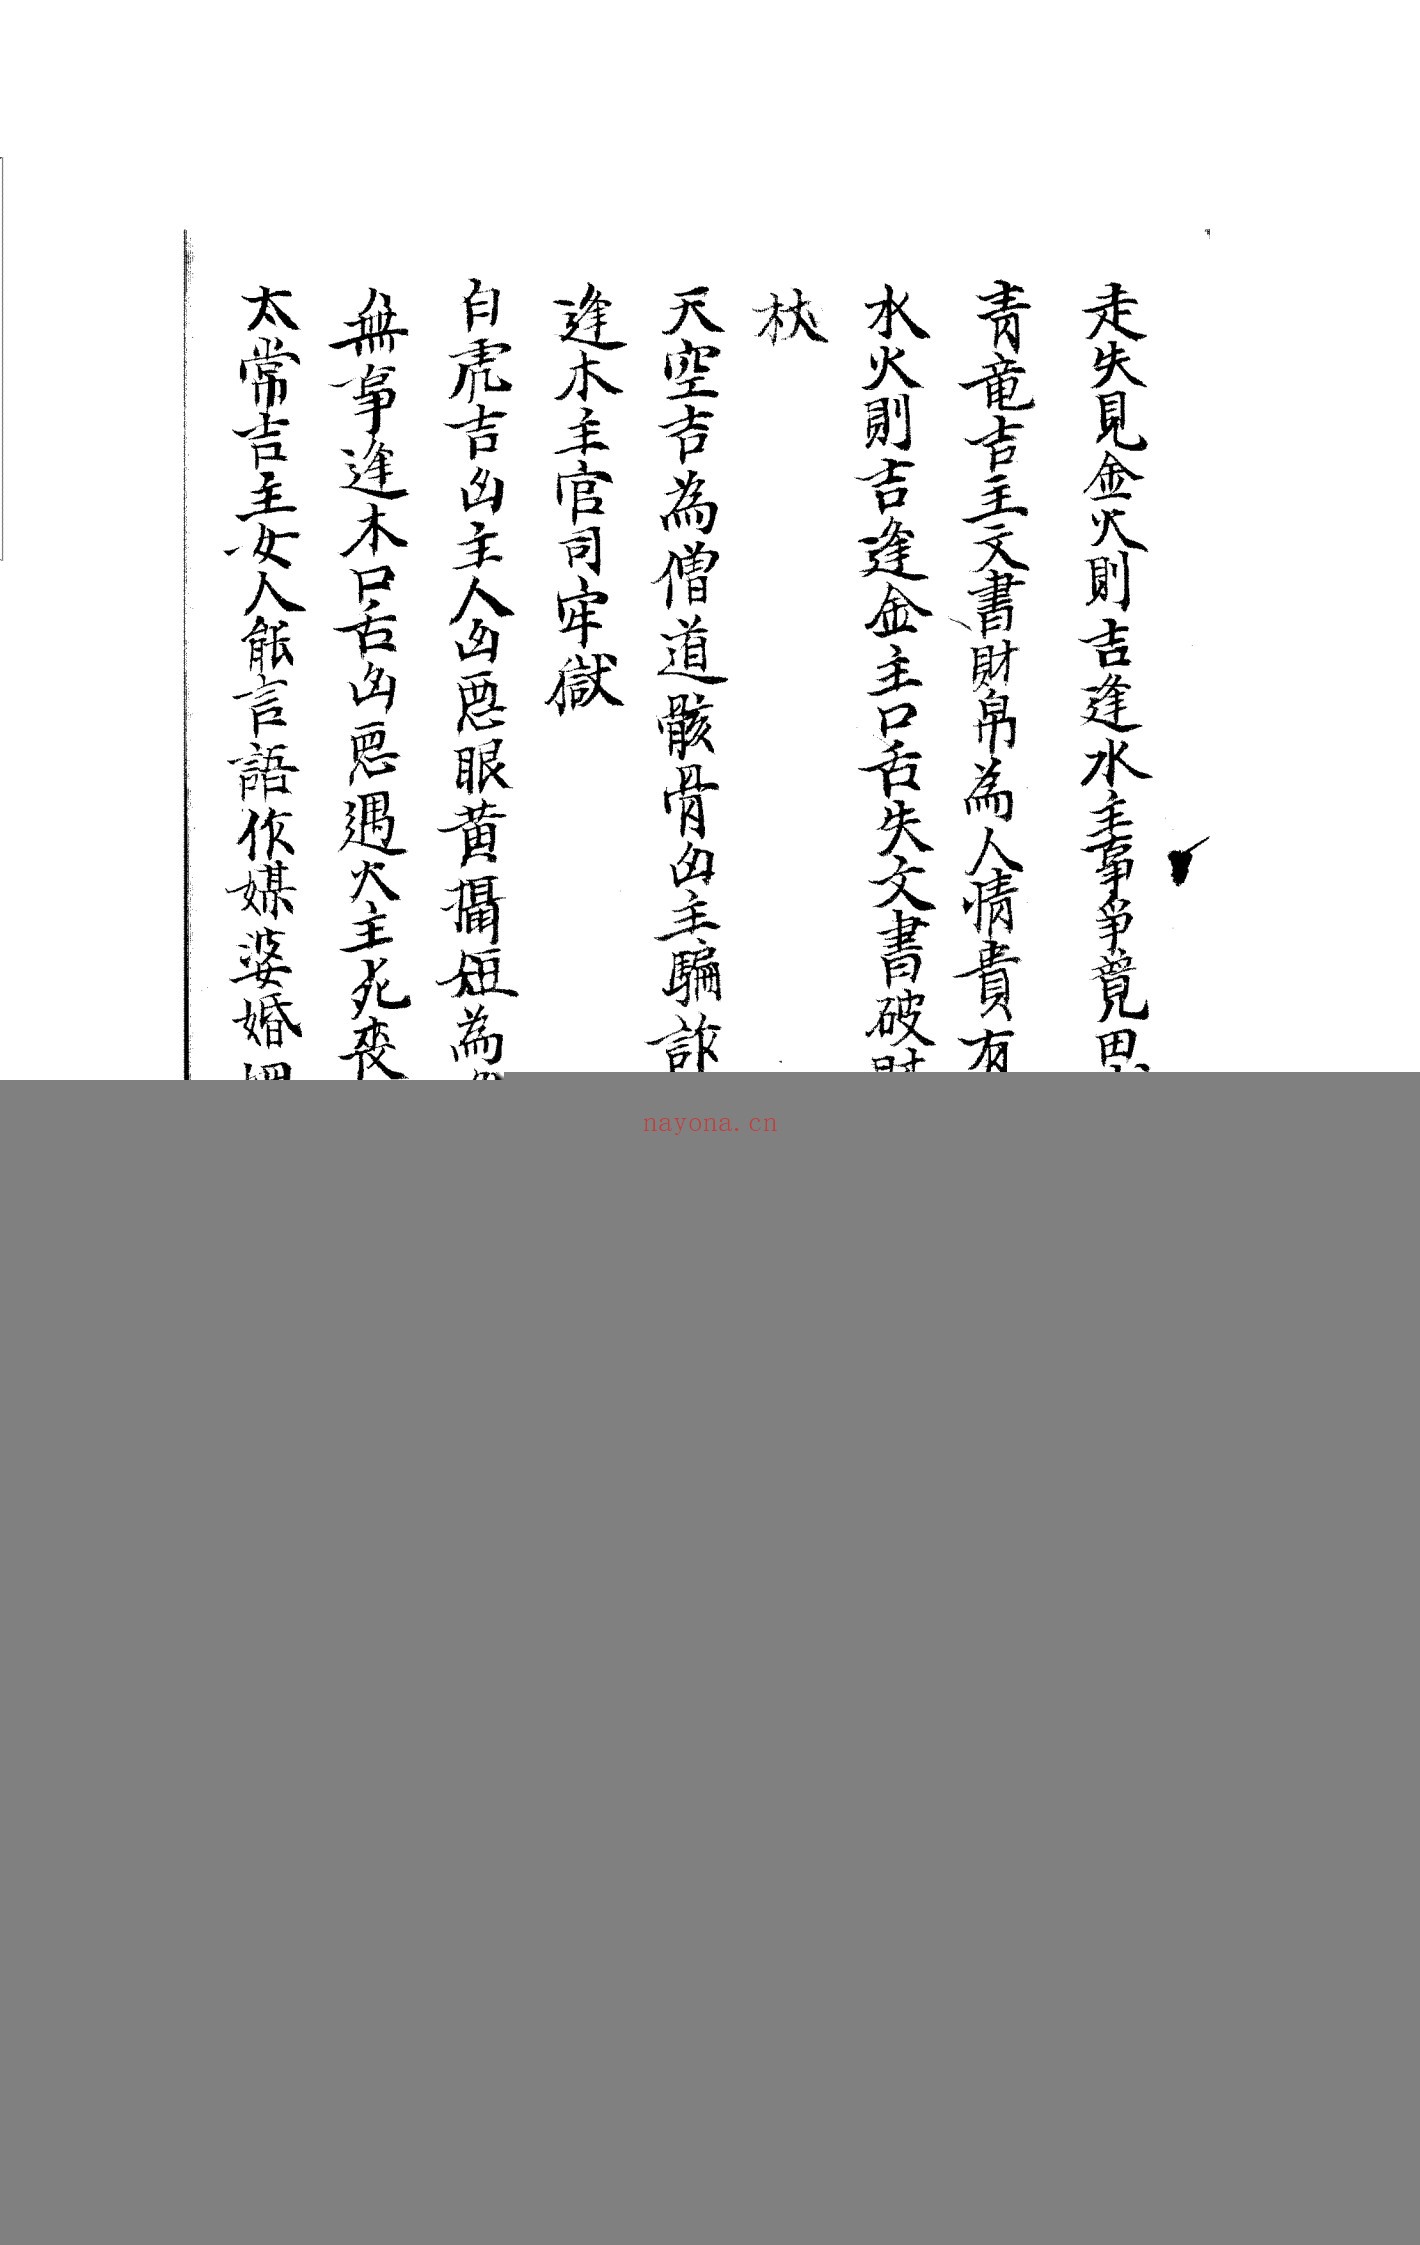 走失見金火則吉逢水主事爭競田
青竜吉主文書財帛為人情貴有
水火則吉逢金主口舌失文書破財
杖
天空吉為僧道骸骨凶主騙詐
逢木主官司牢獄
白虎吉凶主人凶惡眼黃攝短為
無事逢木口舌凶惡遇火主死喪
太常吉主女人能言語作媒婆婚姻
nayona.cn